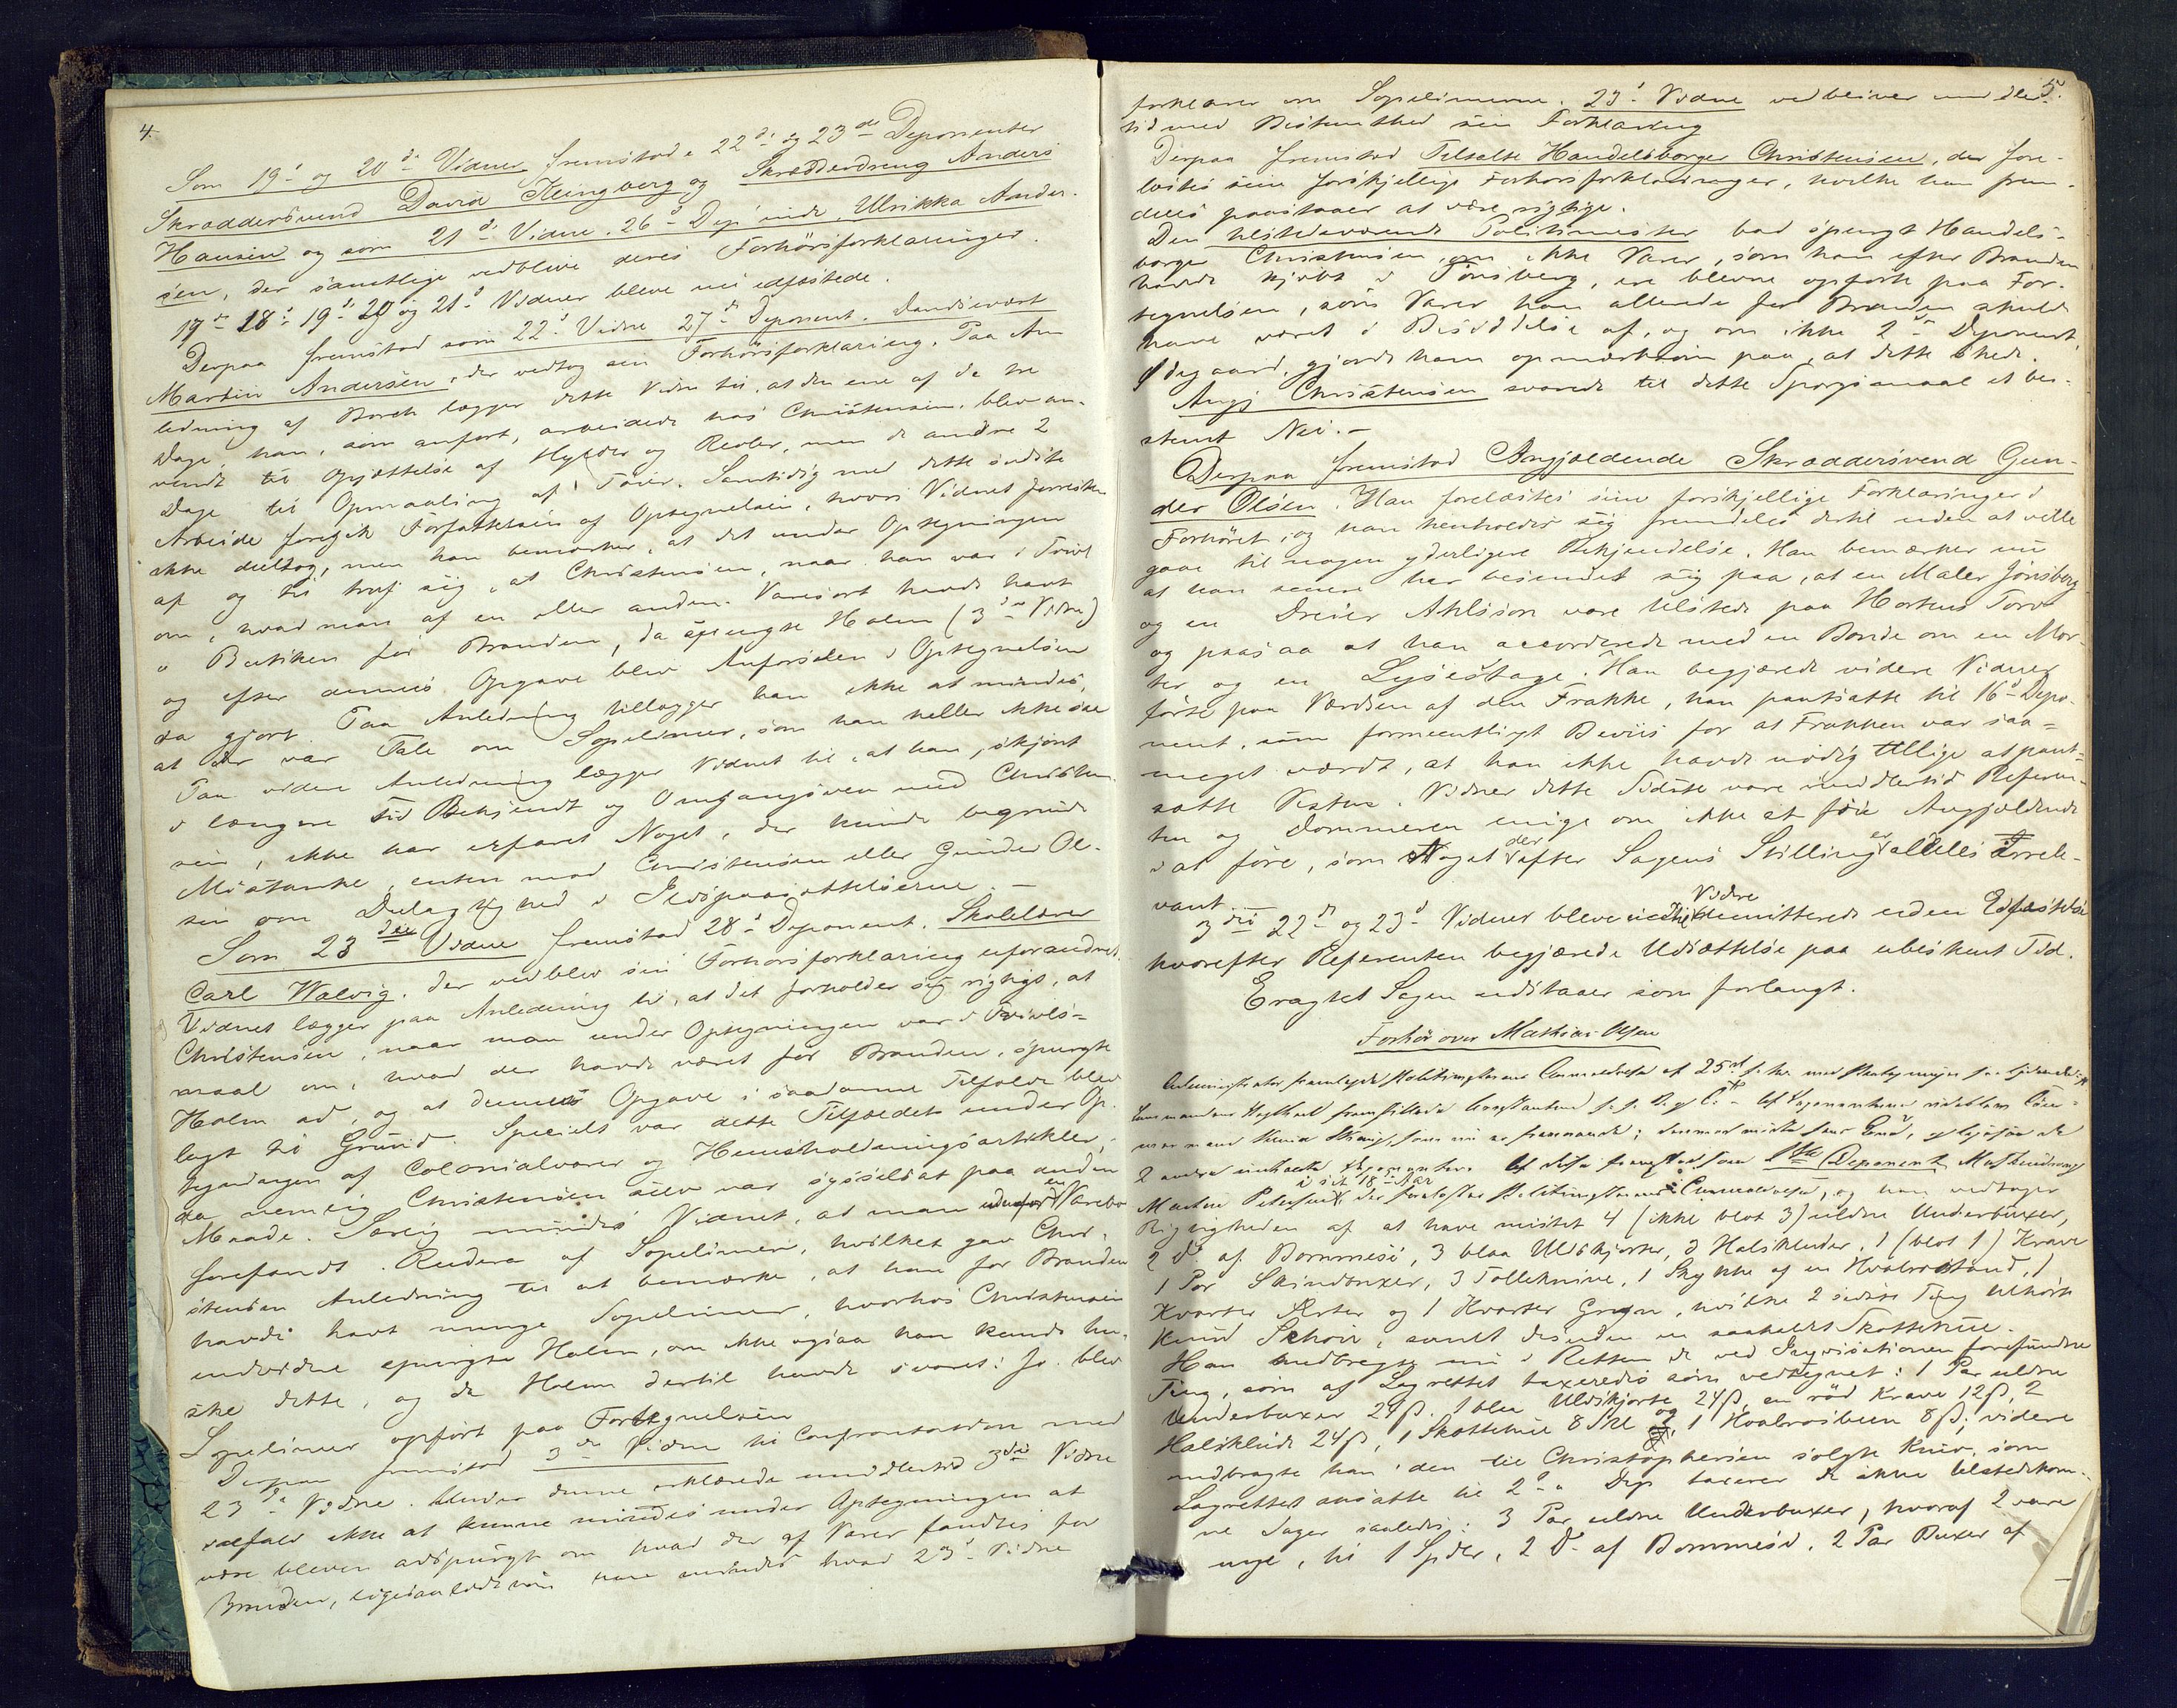 4.
Som 19de og 20de Vidner fremstod 22de og 23de Deponenter
Skræddersvend David Klingberg og Skrædderdreng Anders
Hansen og som 21de Vidne, 26de Dep inde, Ulrikka Ander-
sen, der samtlige vedblive deres Forhörsforklaringer.
17de 18de 19de 20 og 21de Vidner bleve nu edfæstede.
Derpaa fremstod som 22de Vidne 27de Deponent. Dandsevært
Martin Andersen, der vedtog sin Forhörsforklaring. Paa An
ledning af Borch lægger dette Vidne til, at den ene af de tre
Dage han, som anfört, arbeidede hos Christensen, blev an-
vendt til Opsættelse af Hylder og Reoler, men de andre 2
Dage til Opmaaling af Töier. Samtidig med dette sidste
Arbeide foregik Forfattelsen af Optegnelsen, hvori Vidnet forresten
ikke deeltog, men han bemærker, at det under Optegningen
af og til traf sig, at Christensen, naar han var i Tvivl
om, hvad man af en eller anden Varesort havde havt
i Butiken för Branden, da spurgte Holm (3die Vidne)
og efter dennes Opgave blev Anförselen i Optegnelsen
da gjort. Paa Anledning tillægger han ikke at mindes,
at der var Tale om Sopelimer, som han heller ikke saae
Paa videre Anledning lægger Vidnet til, at han, skjönt
i længere Tid Bekjendt og Omgangsven med Christen
sen, ikke har erfaret Noget, der kunde begrunde
Mistanke, enten mod Christensen eller Gunder Ol-
sen om Delagtighed i Ildspaasættelserne. —
Som 23de Vidne fremstod 28de Deponent. Skolelærer
Carl Walvig, der vedblev sin Forhörsforklaring uforandret.
Vidnet lægger paa Anledning til, at det forholder sig rigtigt, at
Christensen, naar man under Optegningen var i Tvivls-
maal om, hvad der havde været för Branden, spurgte
Holm ad, og at dennes Opgave i saadanne Tilfælde blev
lagt til Grund. Specielt var dette Tilfældet under Op-
tegningen af Colonialvarer og Huusholdningsartikler,
da nemlig Christensen selv var sysselsat paa anden
Maade. Særlig mindes Vidnet, at man en Varebo
forefandt Rudera af Sopelimer, hvilket gav Chri-
stensen Anledning til at bemærke, at han för Branden
havde havt mange Sopelimer, hvorhos Christensen
endvidere spurgte Holm, om ikke ogsaa han kunde hu-
ske dette, og da Holm dertil havde svaret: Ja. blev
Sopelimer opfört paa Fortegnelsen
Derpaa fremstod 3die Vidne til Confrontation med
23de Vidne. Under denne erklærede imidlertid 3die Vidne
ialfald ikke at kunne mindes under Optegningen at
være bleven adspurgt om hvad der af Varer fandtes för
Branden, ligesaalidt som han mindes hvad 23de Vidne
5.
forklarer om Sopelimerne. 23de Vidne vedbliver imidler-
tid med Bestemthed sin Forklaring
Derpaa fremstod Tiltalte Handelsborger Christensen, der fore-
læstes sine forskjellige Forhörsforklaringer, hvilke han frem-
deles paastaaer at være rigtige.
Den tilstedeværende Politimester bad spurgt Handels-
borger Christensen, om ikke Varer, som han efter Branden
havde kjöbt i Tönsberg, ere blevne opförte paa For-
tegnelsen, som Varer han allerede för Branden skulde
have været i Besiddelse af, og om ikke 2den Deponent,
Ödegaard, gjorde ham opmærksom paa, at dette skede.
Angj Christensen svarede til dette Spörgsmaal et be-
stemt Nei. —
Derpaa fremstod Angjældende Skræddersvend Gun-
der Olsen. Han forelæstes sine forskjellige Forklaringer i
Forhöret, og han henholder sig fremdeles dertil uden at ville
gaae til nogen yderligere Bekjendelse. Han bemærker nu
at han senere har besindet sig paa, at en Maler Jönsberg
og en Dreier Ahlsson vare tilstede paa Hortens Torv
og paasaa at han accorderede med en Bonde om en Mor-
ter og en Lysestage. Han begjærede videre Vidner
förte paa Værdien af den Frakke, han pantsatte til 16de Depo-
nent, som formeentligt Beviis for at Frakken var saa-
meget værdt, at han ikke havde nödig tillige at pant-
satte Vesten. Vidner dette Sidste vare imidlertid Referen-
ten og Dommeren enige om ikke at före Angjældende
i at före, som Noget der efter Sagens Stilling er aldeles Irrele-
vant.
3die 22de og 23de Vidner bleve Vidre demitterede uden Edfæstelse
hvorefter Referenten begjærede Udsættelse paa ubestemt Tid.
Eragtet Sagen udstaaer som forlangt.
Forhör over Mathias Olsen
Administrator fremlagde Politimesterens Anmeldelse af 25de
2 andre Deponenter. Af disse fremstod som 1ste Deponent
Martin Petersen i sit 18de Aar der forelæstes Politimesterens Anmeldelse, og han vedtager
Rigtigheden af at have mistet 4 (ikke blot 3) uldne Underbuxer,
2 Do af Bommesi, 3 blaa Uldskjorter, 3 Halsklude, 1 (blot 1) Krave
1 Par Skindbuxer, 3 Tolleknive, 1 Stykke af en Hvalrostand, 1
Kvarter Ærter og 1 Kvarter Gryn, hvilke 2 sidste Ting tilhörte
Knud, samt desuden en saakaldt Skottehue.
Han medbragte nu i Retten de ved Inqvisitionen forefundne
Ting, som af Lagrettet taxeredes som vedtegnet: 1 Par uldne
Underbuxer 24ß. 1 blaa Uldskjorte 24ß, en röd Krave 12ß, 2
Halsklude 24ß, 1 Skottehue 8 Skl og 1 Hvalrosbeen 8ß; videre
medbragte han den til Christophersen solgte Kniv, som
Lagrettet ansatte til 2ß. Dep taxerer de ikke tilstedekom-
ne Sager saaledes: 3 Par uldne Underbuxer, hvoraf 2 vare
nye, til 1 Spdlr, 2 Do af Bommesi, 2 Par Buxer af